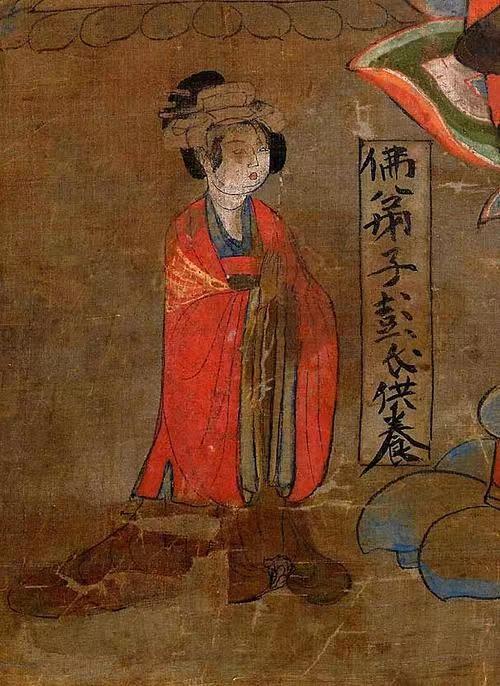 佛弟子彭氏供養